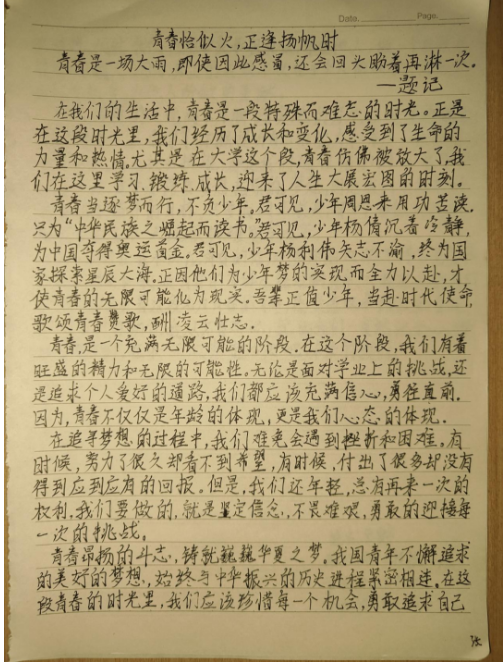 Date. Page.
青春恰似火,正逢扬帆时
青春是一场大雨,即使因此感冒,还会回头盼着再淋一次。
—题记
在我们的生活中,青春是一段特殊而难忘的时光。正是
在这段时光里,我们经历了成长和变化,感受到了生命的
力量和热情.尤其是在大学这个段,青春仿佛被放大了,我
们在这里学习、锻炼、成长,迎来了人生大展宏图的时刻。
青春当逐梦而行,不负少年。君可见,少年周恩来用功苦读,
只为“中华民族之崛起而读书。”君可见,少年杨倩沉着冷静,
为中国夺得奥运首金。君可见,少年杨利伟矢志不渝,终为国
家探索星辰大海.正因他们为少年梦的实现而全力以赴,才
使青春的无限可能化为现实。吾辈正值少年,当赴时代使命,
歌颂青春赞歌,酬凌云壮志.
青春,是一个充满无限可能的阶段.在这个阶段,我们有着
旺盛的精力和无限的可能性。无论是面对学业上的挑战,还
是追求个人爱好的道路,我们都应该充满信心,勇往直前.
因为,青春不仅仅是年龄的体现,更是我们心态的体现.
在追寻梦想的过程中,我们难免会遇到挫折和困难。有
时候,努力了很久却看不到希望,有时候,付出了很多却没有
得到应到应有的回报。但是,我们还年轻,总有再来一次的
权利.我们要做的,就是坚定信念,不畏难艰,勇敢的迎接每
一次的挑战。
青春昂扬的斗志,铸就巍巍华夏之梦。我国青年不懈追求
的美好的梦想,始终与中华振兴的历史进程紧密相连.在这
段青春的时光里,我们应该珍惜每一个机会,勇敢追求自己